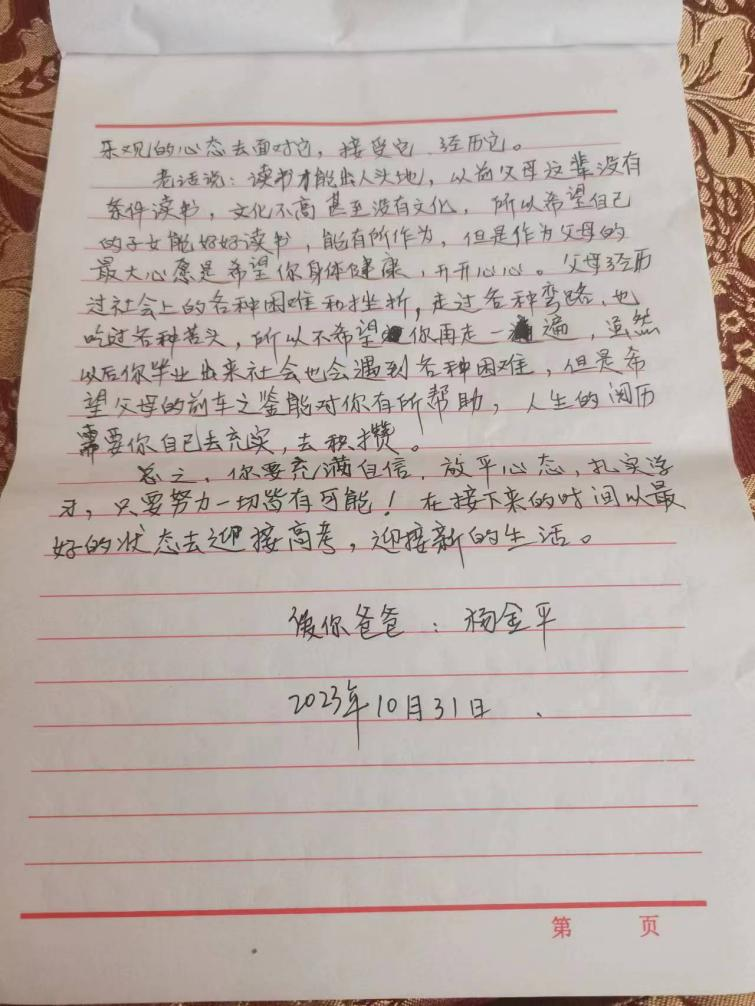 乐观的心态去面对它，接受它、经历它。
老话说：读书才能出人头地，以前父母这辈没有
条件读书，文化不高甚至没有文化，所以希望自己
的子女能好好读书，能有所作为，但是作为父母的
最大心愿是希望你身体健康，开开心心。父母经历
过社会上的各种困难和挫折，走过各种弯路、也
吃过各种苦头，所以不希望你再走一遍，虽然
以后你毕业出来社会也会遇到各种困难，但是希
望父母的前车之鉴能对你有所帮助，人生的阅历
需要你自己去充实，去积攒。
总之，你要充满自信，放平心态，扎实学
习，只要努力一切皆有可能！在接下来的时间以最
好的状态去迎接高考，迎接新的生活。
爱你爸爸：杨金平
2023年10月31日．
第 页